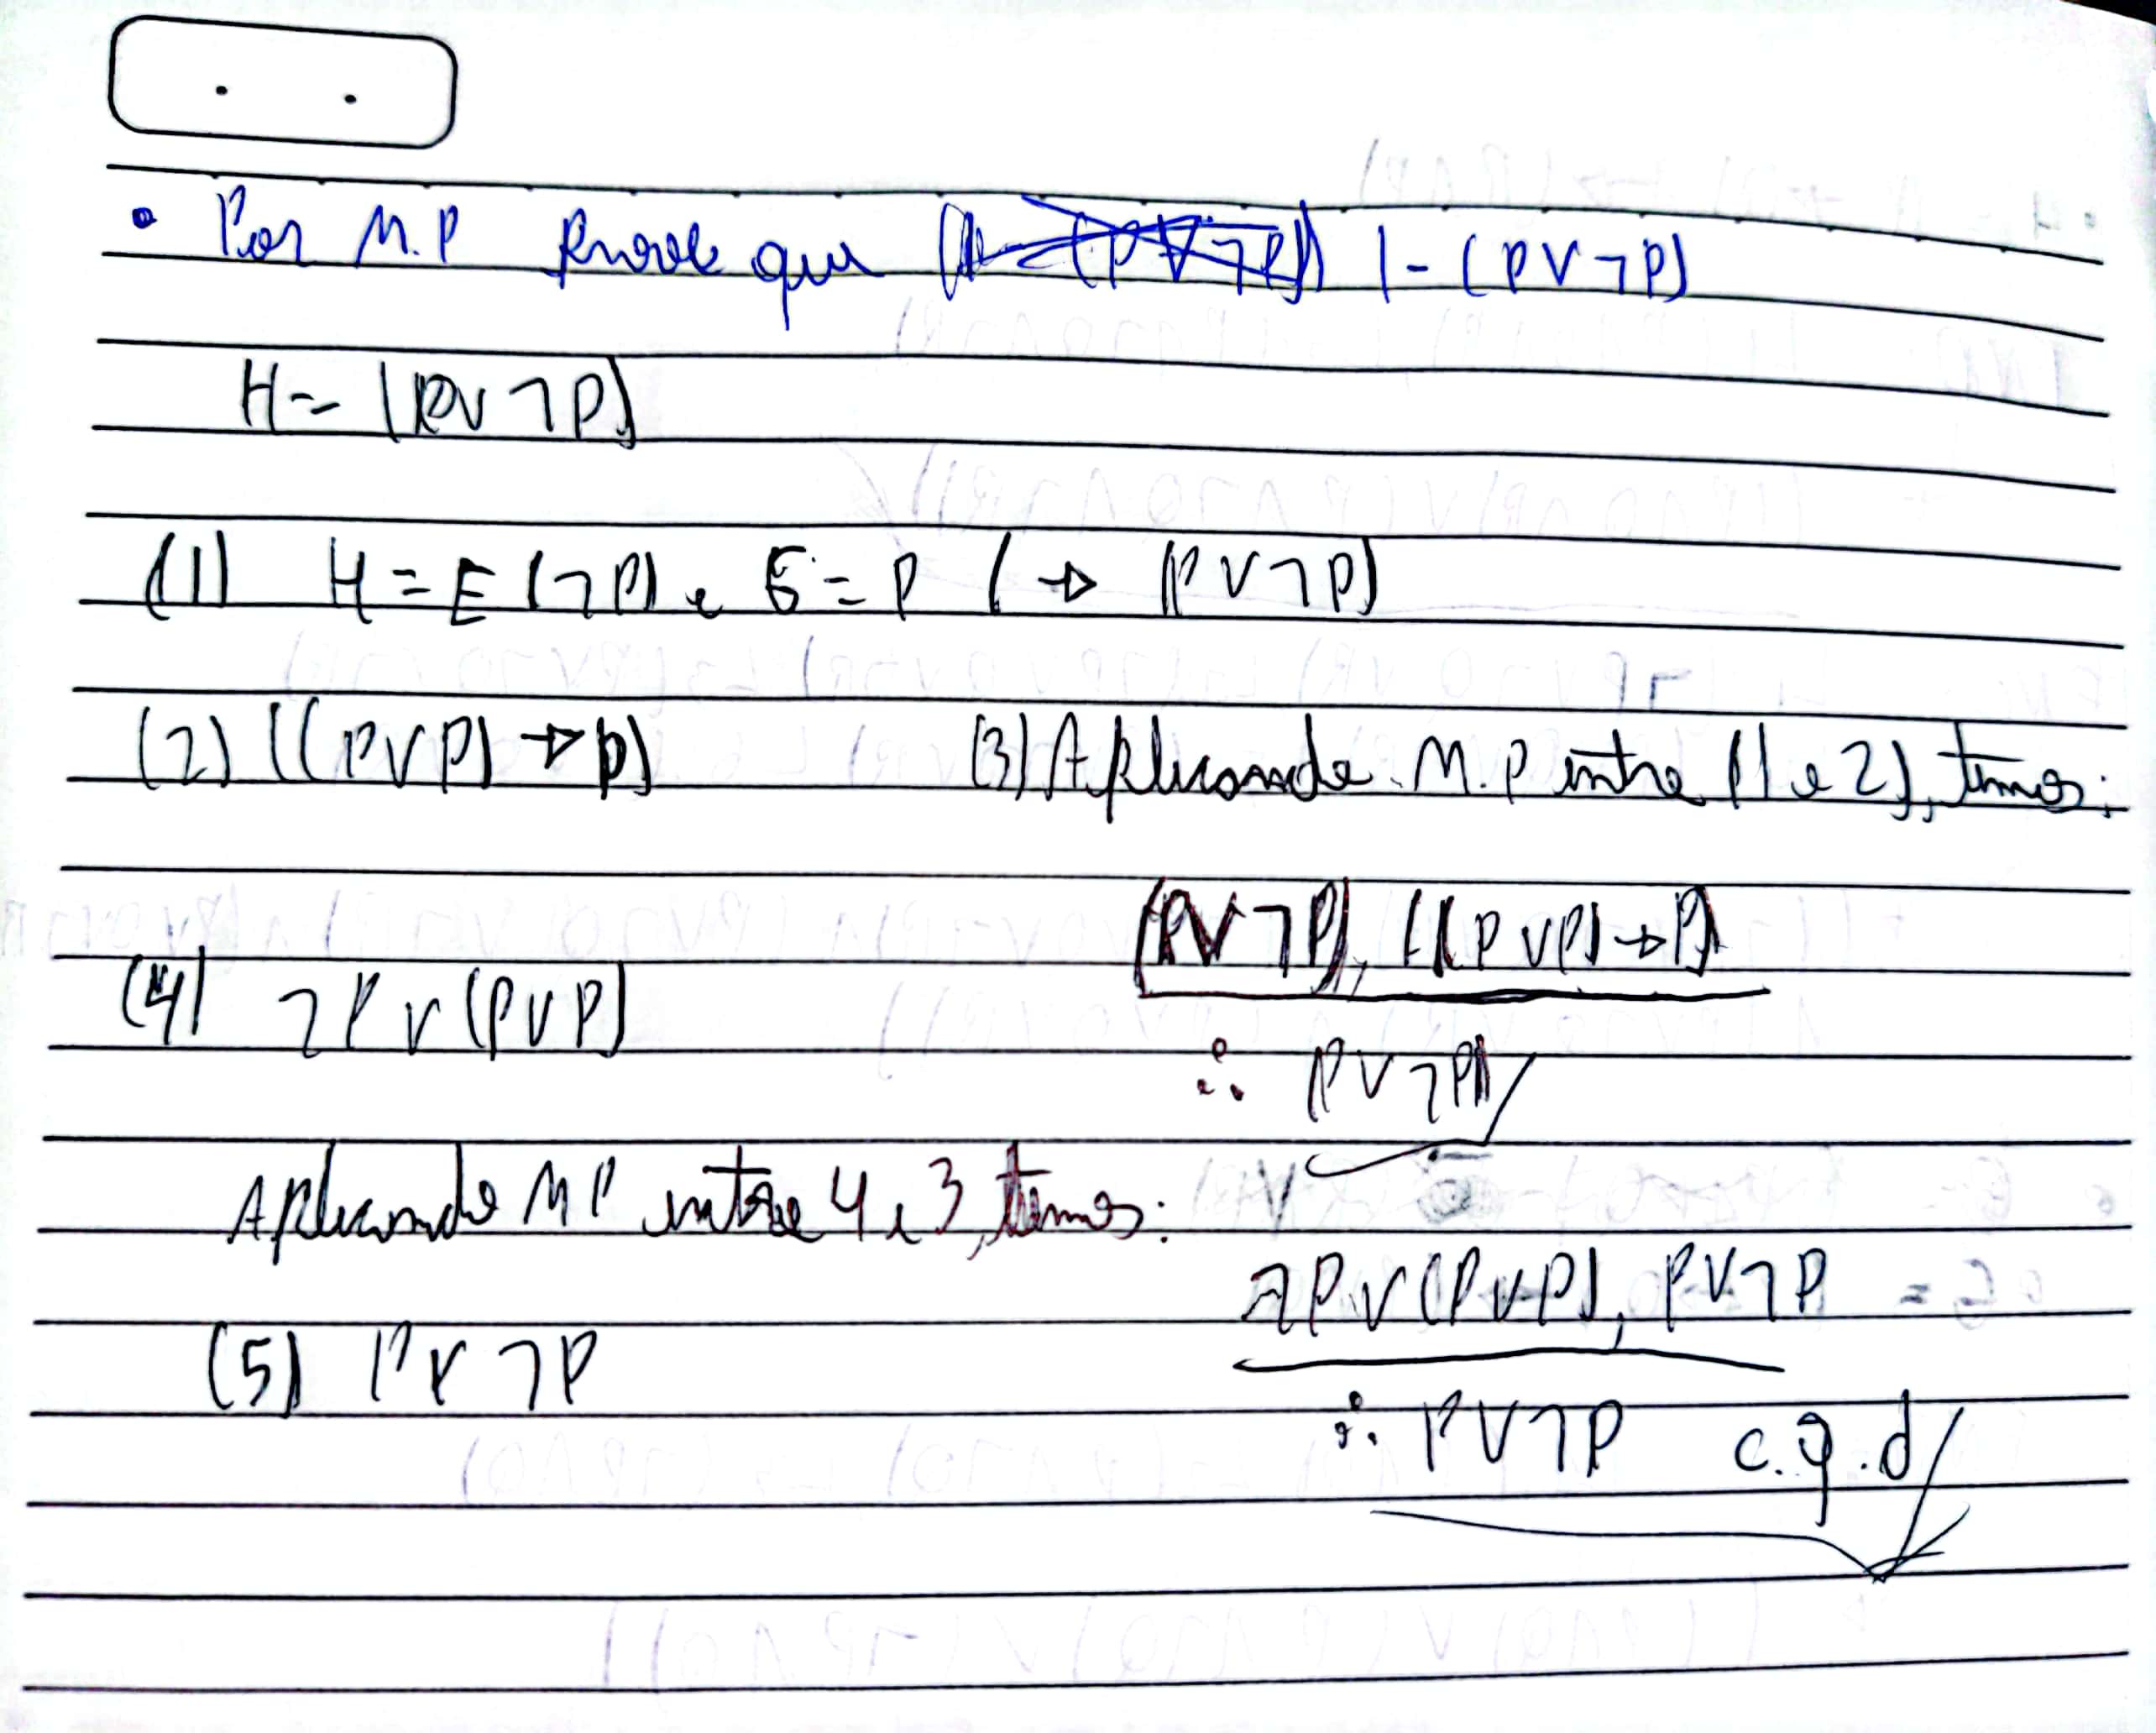 • Por M.P prove que |- (P V ¬P)
H = (P V ¬P)
(1) H = E (¬P) e G = P ( → (P V ¬P)
(2) ((P V P) → P)
(3) Aplicando M.P entre (1 e 2), temos:
(P V ¬P), ((P V P) → P)
(4) ¬P V (P V P)
∴ P V ¬P
Aplicando MP entre 4 e 3, temos:
¬P V (P V P), P V ¬P
(5) P V ¬P
∴ P V ¬P c.q.d